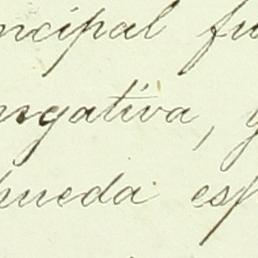 ncipal fu
nsgativa, y
pueda esp